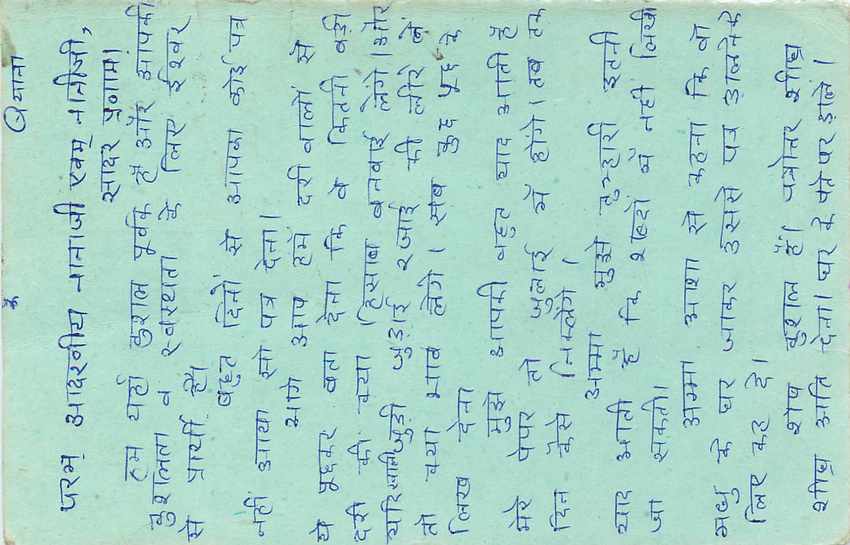 ॐ
बयाना
परम् आदरनीय नानाजी एवम् नानीजी,
सादर प्रणाम।
हम यहाँ कुशल पूर्वक हैं और आपकी
कुशलता व स्वस्थता के लिए ईश्वर
से प्रार्थी हैं।
बहुत दिनों से आपका कोई पत्र
नहीं आया सो पत्र देना।
आगे आप हमें दरी वालों से
ये पूछकर बता देना कि वे कितनी बड़ी
दरी की क्या हिसाब बनवाई लेंगे। और
जुड़ी जुड़ाई रजाई की लीरे लें
तो क्या भाव लेंगे। सब कुछ पूछ के
लिख देना
मुझे आपकी बहुत याद आती है
मेरे पेपर तो जुलाई में होंगे। तब तक
दिन कैसे निकलेंगे।
अम्मा मुझे तुम्हारी इतनी
याद आती है कि शब्दों में नहीं लिखी
जा सकती।
अम्मा आशा से कहना कि वो
मधु के घर जाकर उससे पत्र डालने के
लिए कह दे।
शेष कुशल हैं। पत्रोत्तर शीघ्र
शीघ्र अति देना। घर के पते पर डालें।